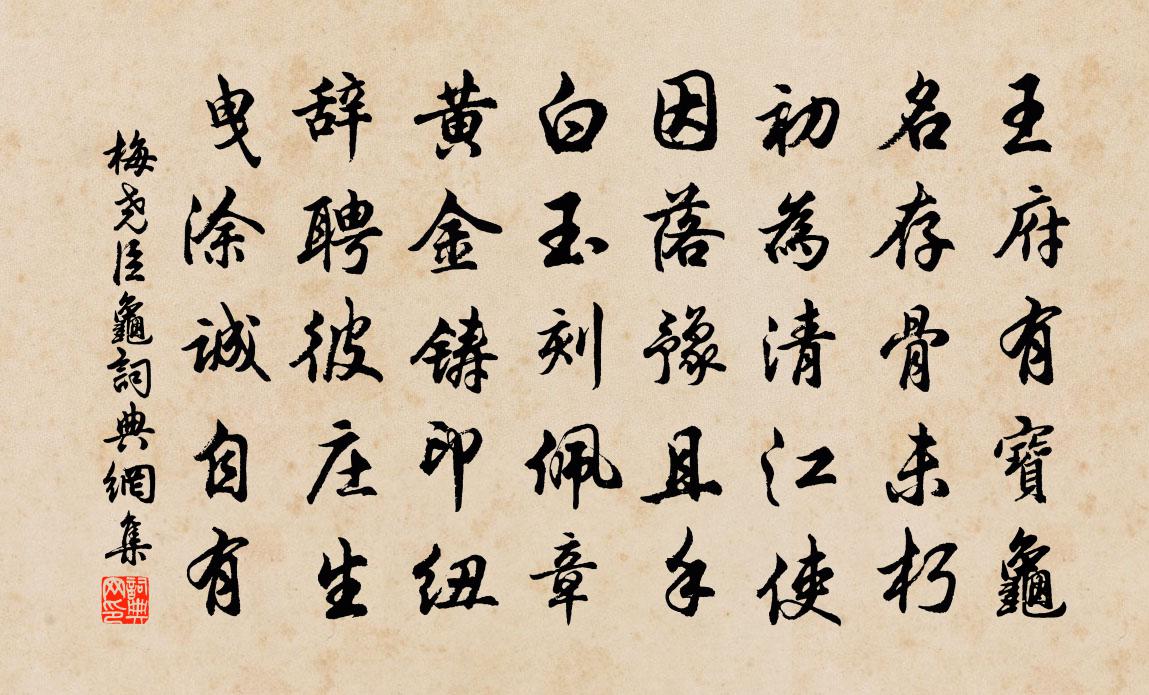 王府有寶龜
名存骨未朽
初為清江使
因落豫且手
白玉刻佩章
黄金鑄印紐
辞聘彼庄生
曳涂誠自有
梅尧臣龜詞典網集
詞典网印